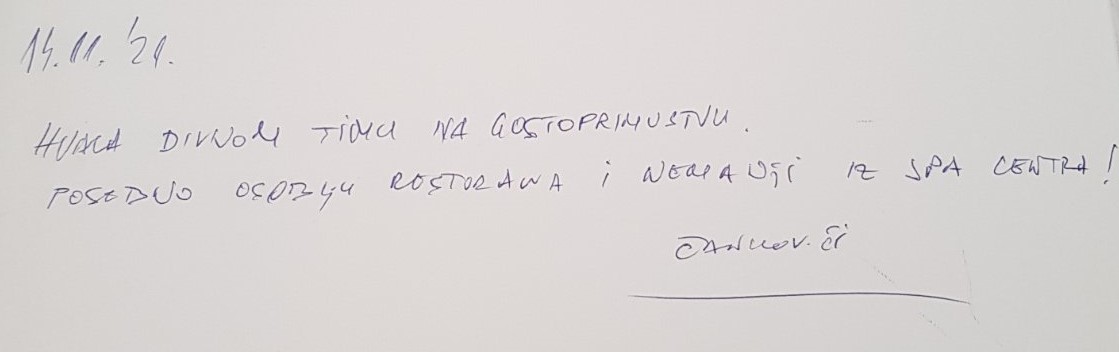 14.11.'21.
HVALA DIVNOM TIMU NA GOSTOPRIMUSTVU.
POSEBNO OSOBLJU RESTORANA I IZ SPA CENTRA!